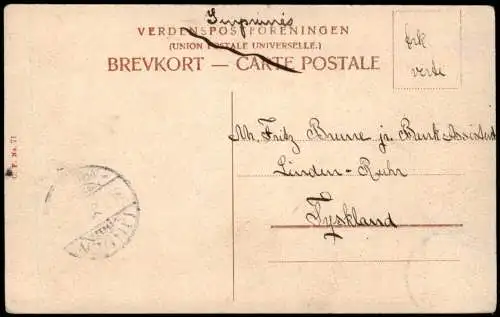 Imprimés
VERDENSPOSTFORENINGEN
(UNION POSTALE UNIVERSELLE.)
BREVKORT — CARTE POSTALE
Mr. Fritz Brune jr. Bank Assistent
Linden-Ruhr
Tyskland
No. 71